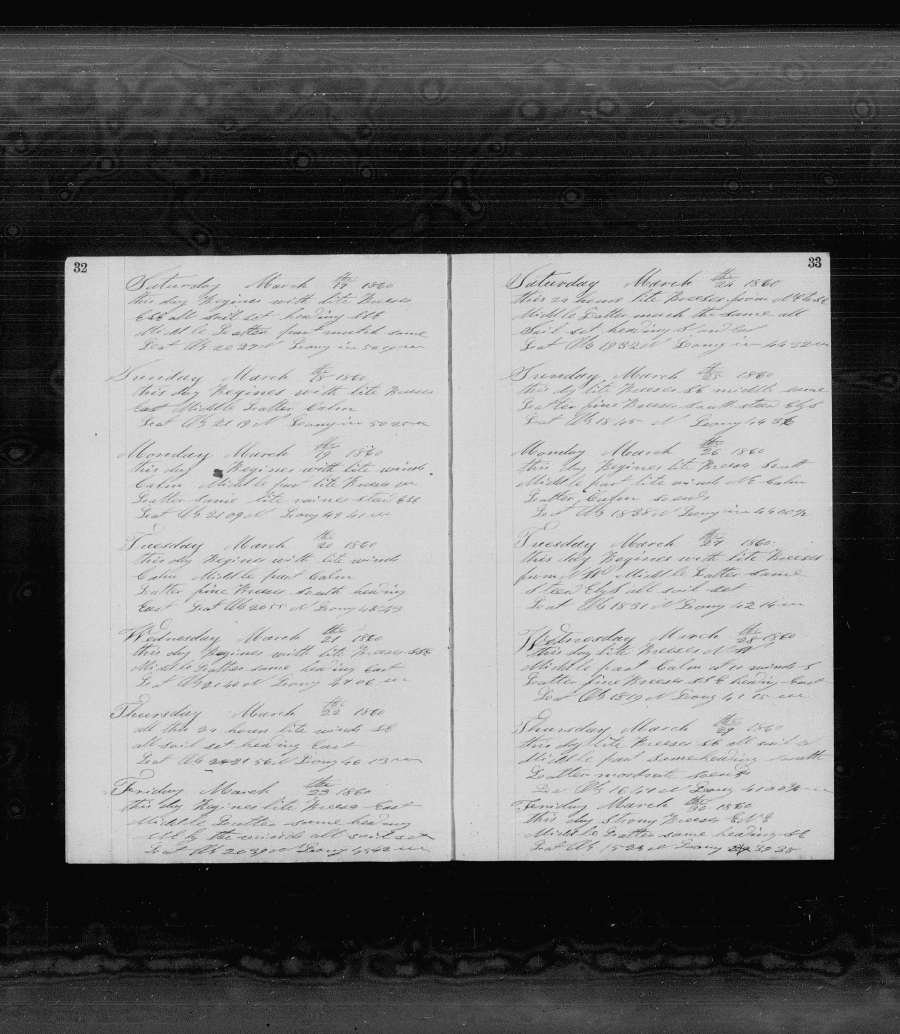 32
Saturday March the 17 1860
this day Begines with lite Breeses
ESE all sail set heading NE
Middle & Latter part mutch same
Leat Ob 20 27 N Long in 50
Sunday March the 18 1860
this day Begines with lite Breeses
East Middle Latter Calm
Leat Ob 21 19 N Long in 50 25
Monday March the 19 1860
this day Begines with lite winds
Calm Middle part lite Breeses
Latter some lite raines steard ESE
Leat Ob 21 09 N Long 49 41
Tuesday March the 20 1860
this day Begines with lite winds
Calm Middle part Calm
Latter fine Breeses South heading
East Leat Ob 20 55 N Long 48
Wednesday March the 21 1860
this day Begines with lite Breeses SSE
Middle Latter same heading East
Leat Ob 21 40 N Long 47 06
Thursday March the 22 1860
all this 24 hours lite winds SE
all sail set heading East
Leat Ob 21 56 N Long 46 13
Friday March the 23 1860
this day Begines lite Breeses East
Middle Latter same heading
by the winds all sail set
Leat Ob 20 39 N Long 45 42
33
Saturday March the 24 1860
this 24 hours lite Breeses from
Middle Latter much the same all
Sail set heading
Leat Ob 19 32 N Long in 44 32
Sunday March the 25 1860
this day lite Breeses SE middle same
Latter fine Breeses South steard
Leat Ob 18 45 N Long 44
Monday March the 26 1860
this day Begines lite Breeses South
Middle part lite winds NE Calm
Latter Calm
Leat Ob 18 38 N Long in 44 00
Tuesday March the 27 1860
this day Begines with lite Breeses
from NW Middle Latter same
all sail set
Leat Ob 18 31 N Long 42 14
Wednesday March the 28 1860
this day lite Breeses N W
Middle part Calm at 10 winds S
Latter fine Breeses SSE heading East
Leat Ob 18 19 N Long 41 15
Thursday March the 29 1860
this day lite Breeses SE all sail
Middle part same heading South
Latter
Ob 16 47 N Long 41 00
Friday March the 30 1860
this day Strong Breeses ENE
Middle Latter same heading SE
Leat Ob 15 24 N Long 39 38